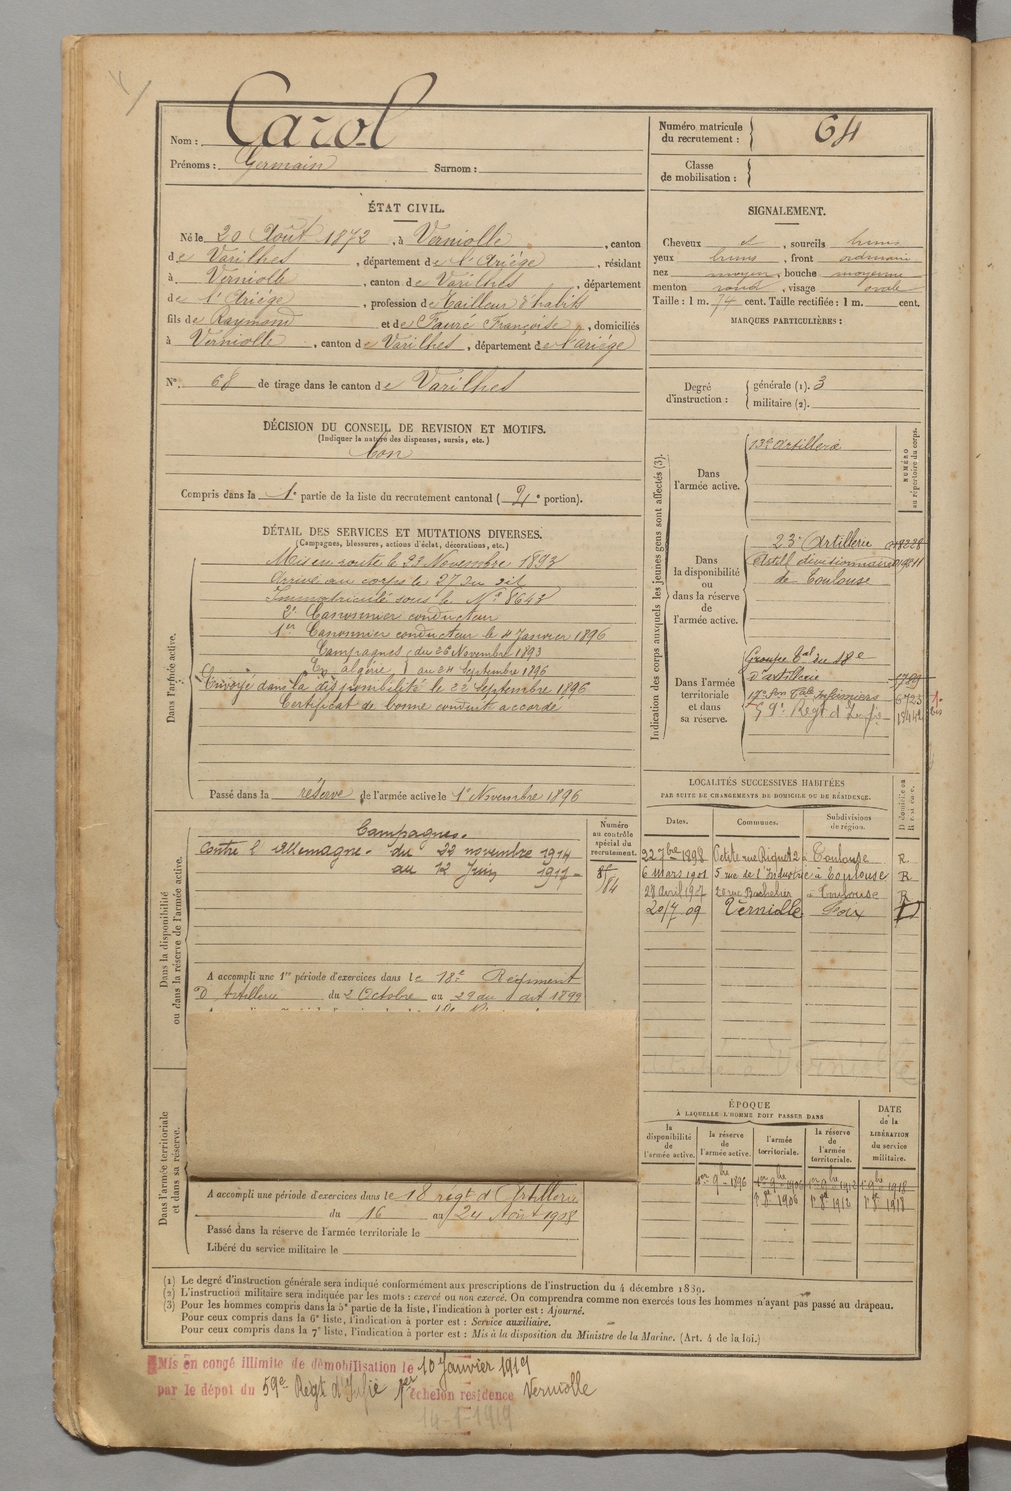 Nom : Carol
Prénoms : Germain Surnom :
Numéro matricule du recrutement : 64
Classe de mobilisation :
ÉTAT CIVIL.
Né le 20 Août 1872, à Verniolle, canton
de Varilhes, département de l'Ariége, résidant
à Verniolle, canton de Varilhes, département
de l'Ariége, profession de Tailleur d'habits
fils de Raymond et de Fauré Françoise, domiciliés
à Verniolle, canton de Varilhes, département de l'ariége
N° 68 de tirage dans le canton de Varilhes
DÉCISION DU CONSEIL DE REVISION ET MOTIFS.
(Indiquer la nature des dispenses, sursis, etc.)
bon
Compris dans la 1e partie de la liste du recrutement cantonal (2e portion).
SIGNALEMENT.
Cheveux et, sourcils bruns
yeux bruns, front ordinaire
nez moyen, bouche moyenne
menton rond, visage ovale
Taille : 1 m. 74 cent. Taille rectifiée : 1 m. cent.
MARQUES PARTICULIÈRES :
Degré d'instruction :
générale (1). 3
militaire (2).
DÉTAIL DES SERVICES ET MUTATIONS DIVERSES.
(Campagnes, blessures, actions d'éclat, décorations, etc.)
Dans l'armée active.
Mis en route le 22 Novembre 1893
Arrivé au corps le 27 du dit
Immatriculé sous le N° 8643
2e Canonnier conducteur
1er Canonnier conducteur le 4 Janvier 1896
Campagnes du 26 Novembre 1893
En algérie au 24 Septembre 1896
Envoyé dans la disponibilité le 22 Septembre 1896
Certificat de bonne conduite accordé
Passé dans la réserve de l'armée active le 1er Novembre 1896
Indication des corps auxquels les jeunes gens sont affectés (3).
NUMÉRO au répertoire du corps.
Dans l'armée active.
13e Artillerie
Dans la disponibilité ou dans la réserve de l'armée active.
23e Artillerie
Artill divisionnaire
de Toulouse
Dans l'armée territoriale et dans sa réserve.
Groupe tal du 18e
d'artillerie
17e son tale Infirmiers 6723
59e Regt d'Infie
Dans la disponibilité ou dans la réserve de l'armée active.
Campagnes.
Contre l'Allemagne. du 22 novembre 1914
au 12 Juin 1917
Numéro au contrôle spécial du recrutement.
A accompli une 1re période d'exercices dans le 18e Régiment
D'Artillerie du 2 Octobre au 29 du dit 1899
LOCALITÉS SUCCESSIVES HABITÉES
PAR SUITE DE CHANGEMENTS DE DOMICILE OU DE RÉSIDENCE.
Dates. Communes. Subdivisions de région. D domicile ou R résidence.
22 7bre 1898 Petite rue Riquet 2 à Toulouse R.
6 mars 1901 5 rue de l'Industrie à Toulouse R.
28 Avril 1907 20 rue Bachelier à Toulouse R
20/7 09 Verniolle Foix D
Dans l'armée territoriale et dans sa réserve.
A accompli une période d'exercices dans le 18 régt d'Artillerie
du 16 au 24 Août 1908
Passé dans la réserve de l'armée territoriale le
Libéré du service militaire le
ÉPOQUE
À LAQUELLE L'HOMME DOIT PASSER DANS
la disponibilité de l'armée active.
la réserve de l'armée active.
l'armée territoriale.
la réserve de l'armée territoriale.
DATE de la LIBÉRATION du service militaire.
1er 9bre 1896 1er 9bre 1906 1er 9bre 1912 1er 9bre 1918
1er 8bre 1906 1er 8bre 1912 1er 8bre 1918
(1) Le degré d'instruction générale sera indiqué conformément aux prescriptions de l'instruction du 4 décembre 1889.
(2) L'instruction militaire sera indiquée par les mots : exercé ou non exercé. On comprendra comme non exercés tous les hommes n'ayant pas passé au drapeau.
(3) Pour les hommes compris dans la 5e partie de la liste, l'indication à porter est : Ajourné.
Pour ceux compris dans la 6e liste, l'indication à porter est : Service auxiliaire.
Pour ceux compris dans la 7e liste, l'indication à porter est : Mis à la disposition du Ministre de la Marine. (Art. 4 de la loi.)
Mis en congé illimité de démobilisation le 10 Janvier 1919
par le dépot du 59e Regt d'Infie 1er échelon résidence Verniolle
14-1-1919